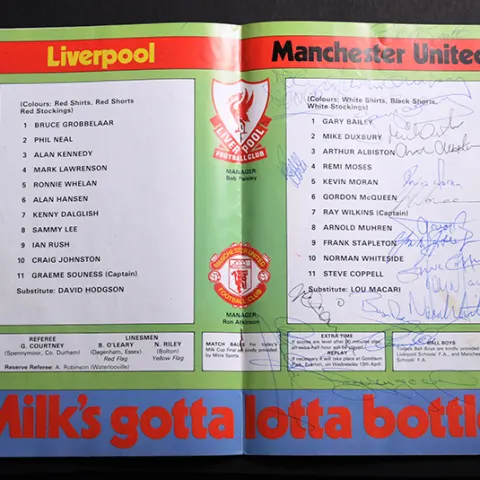 Liverpool
(Colours: Red Shirts, Red Shorts
Red Stockings)
1 BRUCE GROBBELAAR
2 PHIL NEAL
3 ALAN KENNEDY
4 MARK LAWRENSON
5 RONNIE WHELAN
6 ALAN HANSEN
7 KENNY DALGLISH
8 SAMMY LEE
9 IAN RUSH
10 CRAIG JOHNSTON
11 GRAEME SOUNESS (Captain)
Substitute: DAVID HODGSON
LIVERPOOL
FOOTBALL CLUB
MANAGER
Bob Paisley
MANCHESTER UNITED
FOOTBALL CLUB
MANAGER:
Ron Atkinson
Manchester United
(Colours: White Shirts, Black Shorts,
White Stockings)
1 GARY BAILEY
2 MIKE DUXBURY
3 ARTHUR ALBISTON
4 REMI MOSES
5 KEVIN MORAN
6 GORDON McQUEEN
7 RAY WILKINS (Captain)
8 ARNOLD MUHREN
9 FRANK STAPLETON
10 NORMAN WHITESIDE
11 STEVE COPPELL
Substitute: LOU MACARI
REFEREE
G. COURTNEY
(Spennymoor, Co. Durham)
LINESMEN
B. O'LEARY
(Dagenham, Essex)
Red Flag
N. RILEY
(Bolton)
Yellow Flag
Reserve Referee: A. Robinson (Waterlooville)
MATCH BALLS for today's
Milk Cup Final are kindly provided
by Mitre Sports.
EXTRA TIME
If scores are level after 90 minutes play
an extra half hour will be played.
REPLAY
If necessary, will take place at Goodison
Park, Everton, on Wednesday 13th April.
BALL BOYS
Boys are kindly provided by
Liverpool Schools' F.A., and Manchester
Schools' F.A.
Milk's gotta lotta bottle